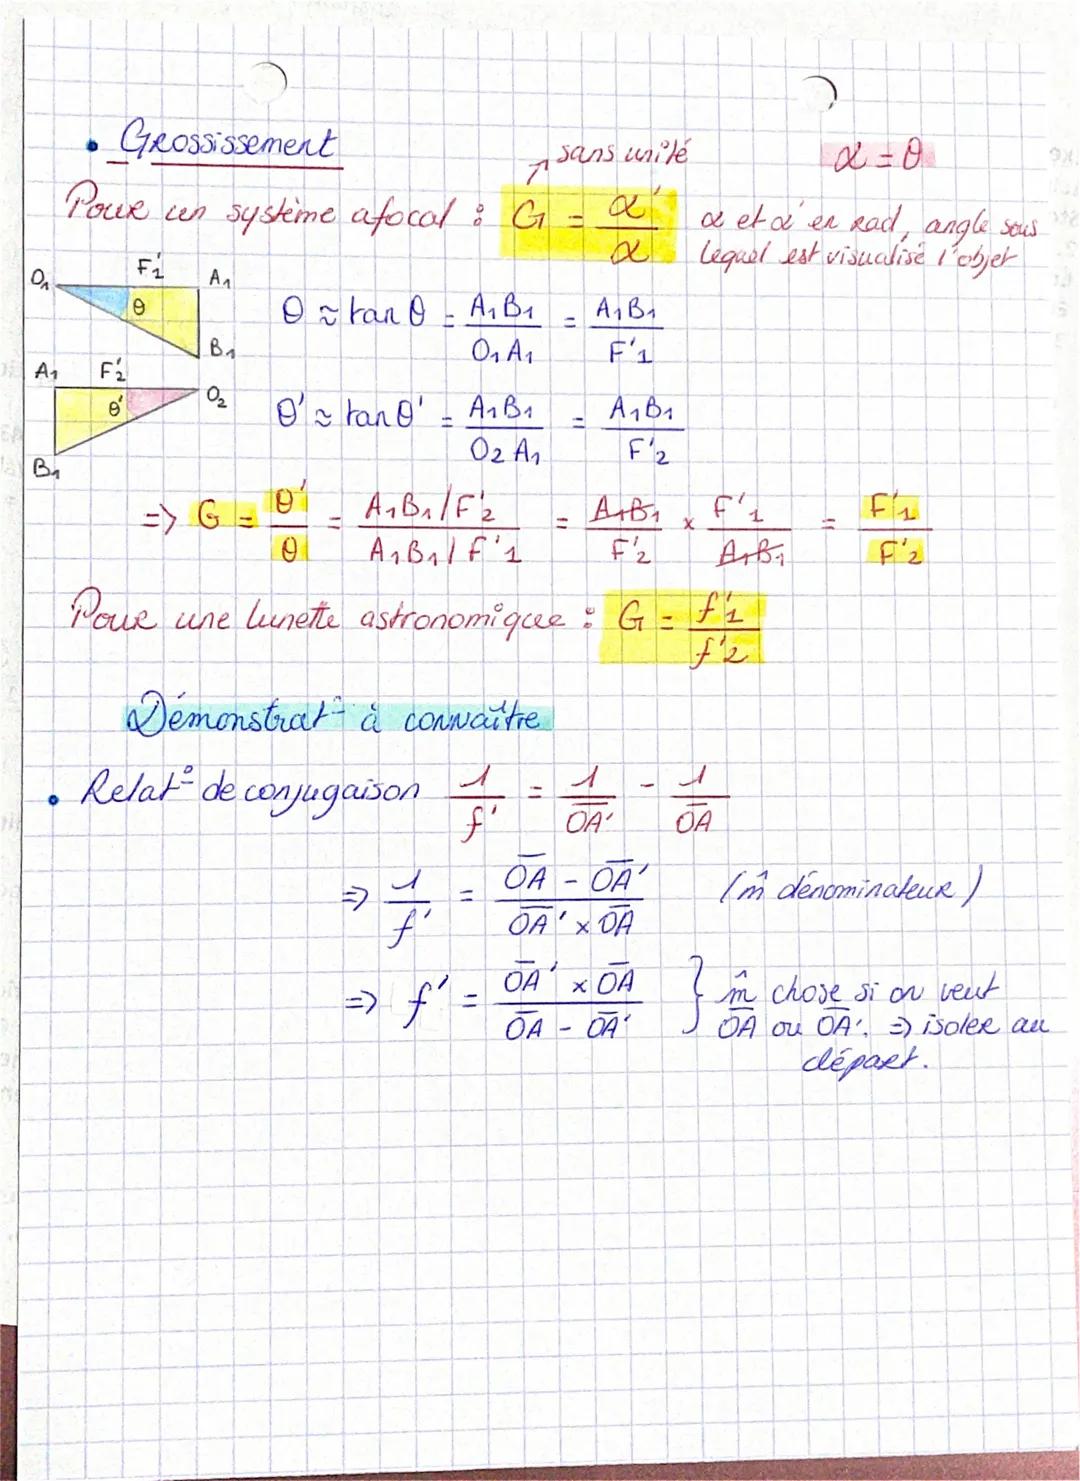 • Grossissement
sans unité
α = θ
Pour un système afocal : G = α' / α
α et α' en rad, angle sous
lequel est visualisé l'objet
O₁ F'₁ A₁
θ
B₁
θ ≈ tan θ = A₁B₁ / O₁A₁ = A₁B₁ / F'₁
A₁ F'₂ O₂
θ'
B₁
θ' ≈ tan θ' = A₁B₁ / O₂A₁ = A₁B₁ / F'₂
=> G = θ' / θ = A₁B₁/F'₂ / A₁B₁/F'₁ = A₁B₁ / F'₂ × F'₁ / A₁B₁ = F'₁ / F'₂
Pour une lunette astronomique : G = f'₁ / f'₂
Démonstrat° à connaître
• Relat° de conjugaison 1 / f' = 1 / O̅A̅' - 1 / O̅A̅
=> 1 / f' = O̅A̅ - O̅A̅' / O̅A̅' × O̅A̅ (m̂ dénominateur)
=> f' = O̅A̅' × O̅A̅ / O̅A̅ - O̅A̅' } m̂ chose si on veut
O̅A̅ ou O̅A̅'. => isoler au
départ.